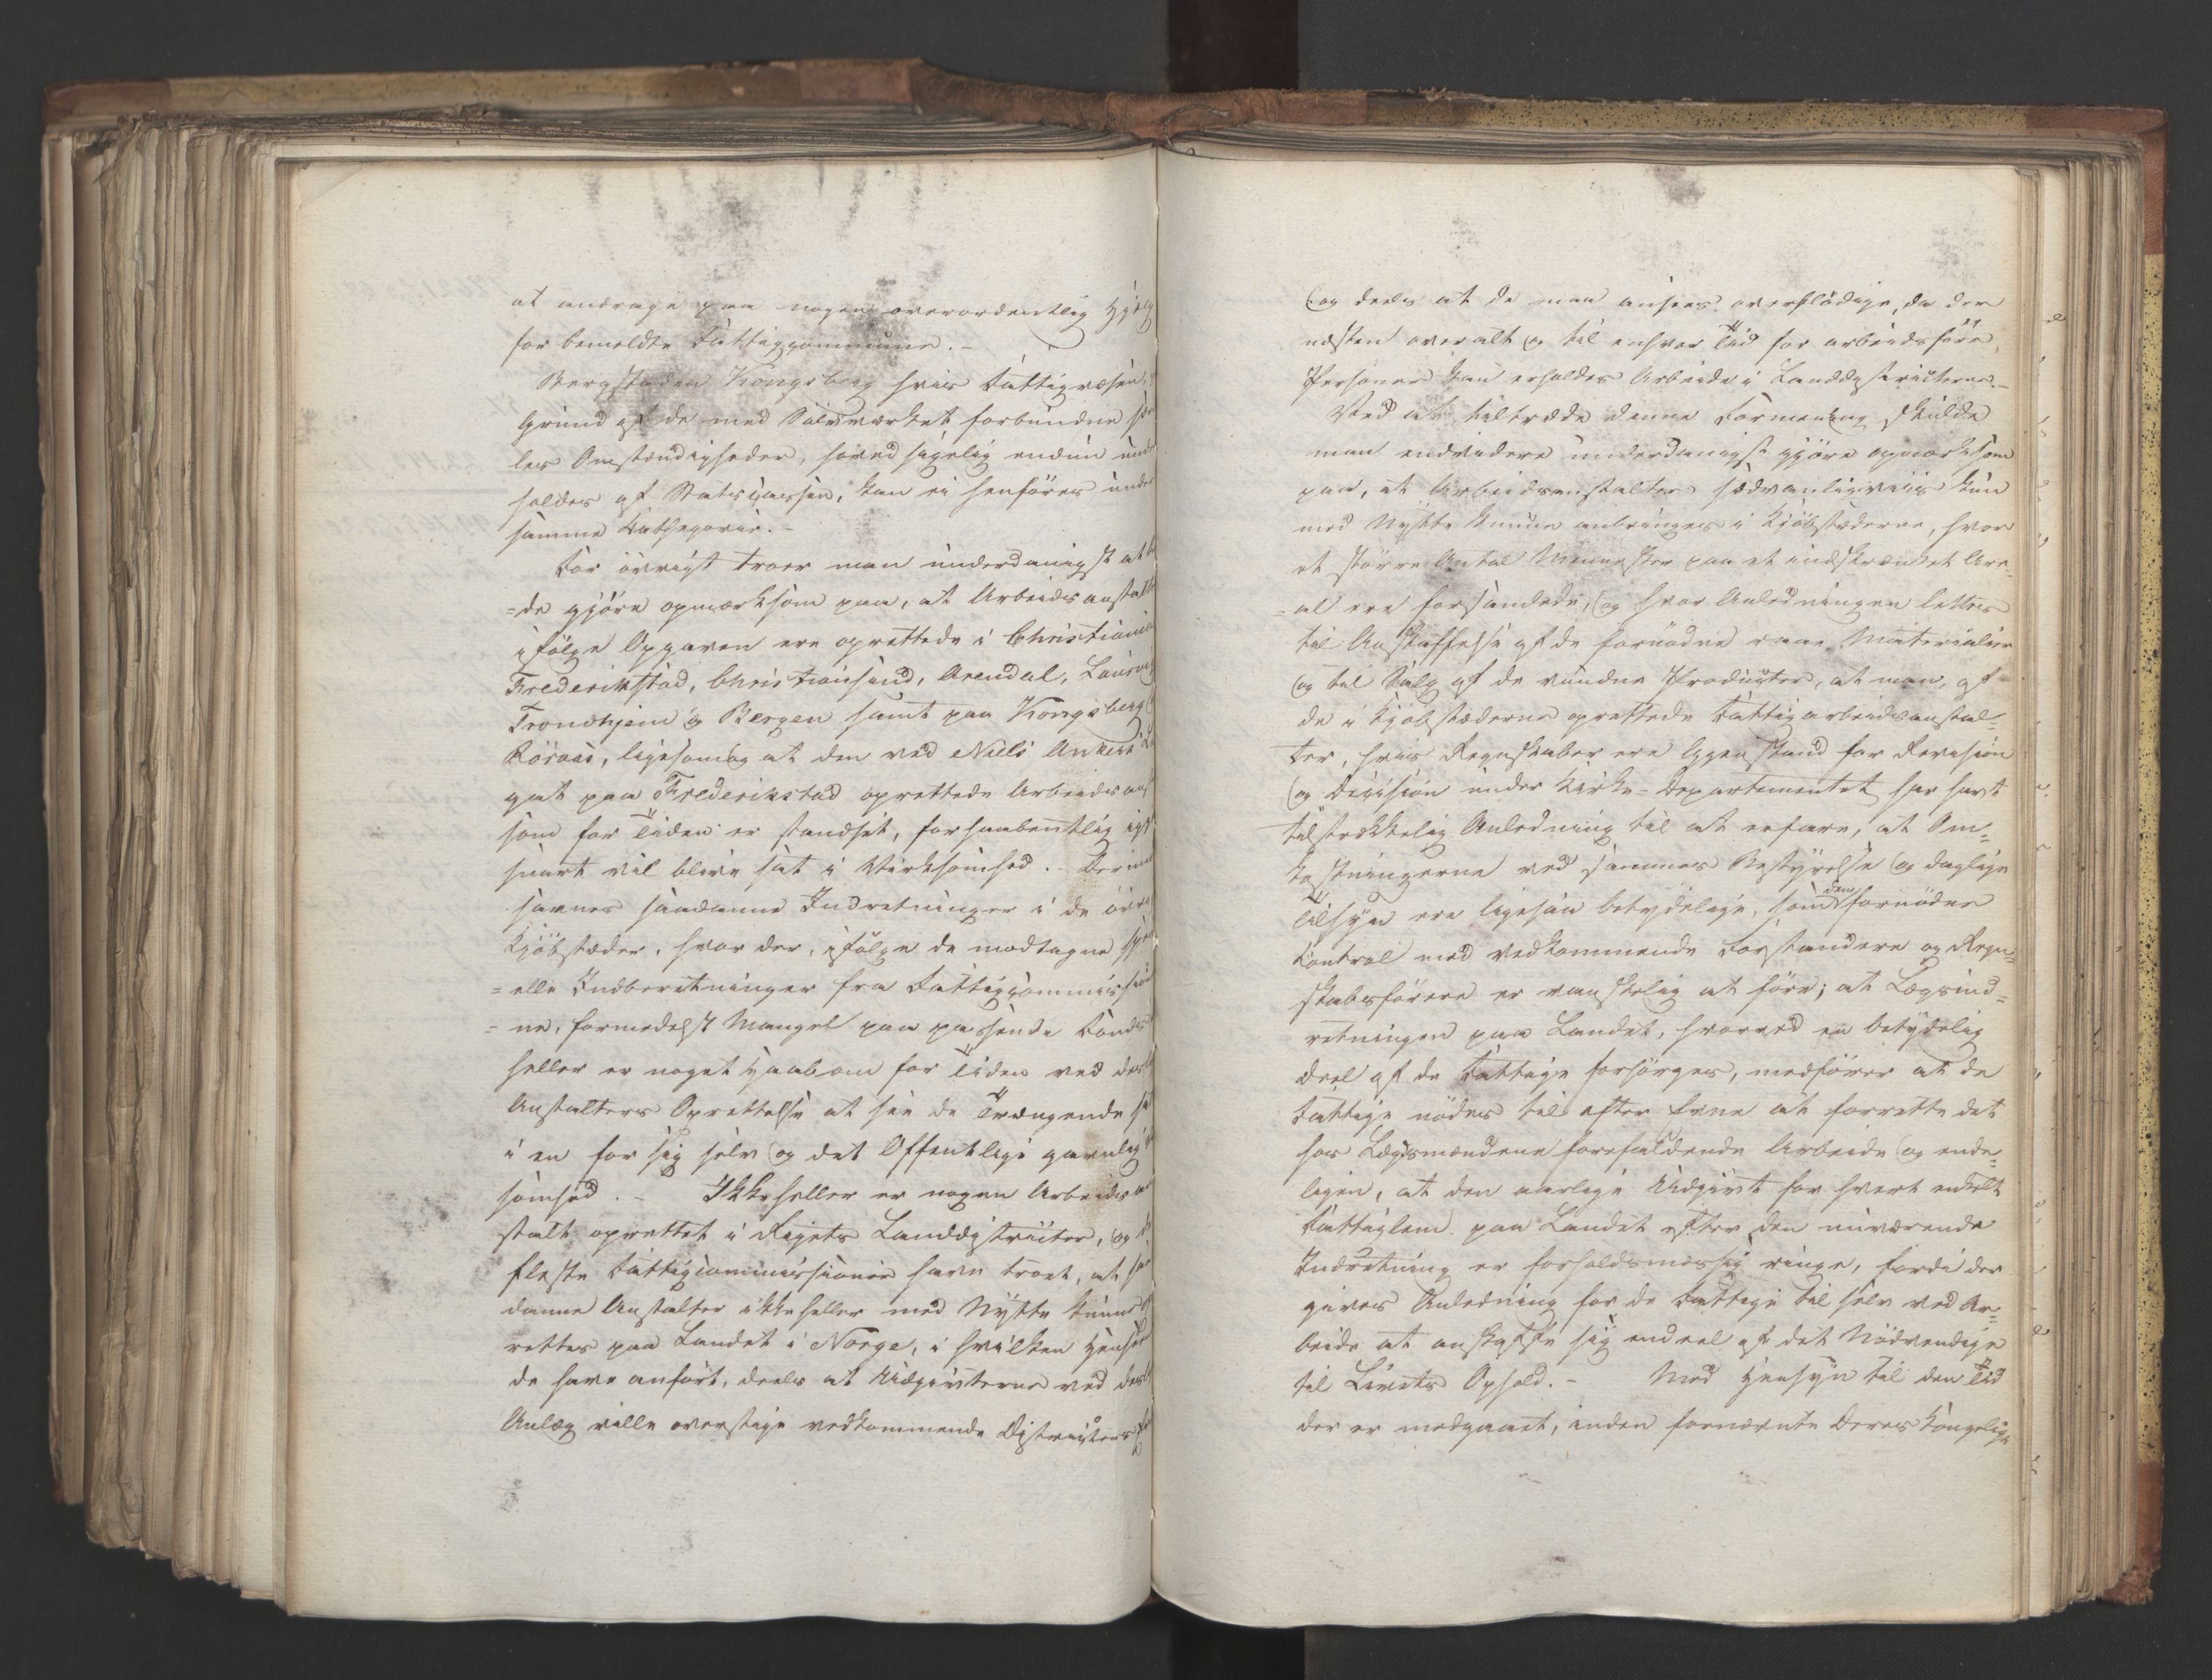 at andrage paa nogen overordentlig Hjelp
for bemeldte Fattigcommune. -
Bergstaden Kongsberg hvis Fattigvæsen,
Grund af de med Sølvværket forbundne
les Omstændigheder, hovedsigelig endnu unde
holdes af Statscassen, kan ei henføres under
samme Kathegorie. -
For øvrigt troer man underdanigst at
=de gjøre opmærksom paa, at Arbeidsanstalt
ifølge Opgaven ere oprettede i Christiania
Frederikstad, Christiansund, Arendal, Laurvig
Trondhjem og Bergen samt paa Kongsberg
Röraas, ligesom og at den ved Niels Ankers
gat paa Frederikstad oprettede Arbeidsanst
som for Tiden er standset, forhaabentlig igj
snart vil blive sat i Virksomhed. - Derimod
savnes saadanne Indretninger i de øvri
Kjøbstæder, hvor der, ifølge de modtagne spe
=elle Indberetninger fra Fattigcommission
=ne, formedelst Mangel paa passende Fonds
heller er noget Haab om for Tiden ved des
Anstalters Oprettelse at see de Trængende sat
i en for sig selv og det Offentlige gavnlig
somhed. - Ikke heller er nogen Arbeidsan
stalt oprettet i Rigets Landdistricter, og d
fleste Fattigcommissioner have troet, at saa
danne Anstalter ikke heller med Nytte kunne op
rettes paa Landet i Norge, i hvilken Henseen
de have anført, deels at Udgivterne ved dest
Anlæg ville overstige vedkommende Districters
og deels at de maa ansees overflødige, da der
næsten overalt og til enhver Tid for arbeidsføre
Personer kan erholdes Arbeide i Landdistricterne. -
Ved at tiltræde denne Formening skulde
man endvidere underdanigst gjøre opmærksom
paa, at Arbeidsanstalter sædvanligviis kun
med Nytte kunne anbringes i Kjøbstæderne, hvor
et større Antal Mennesker paa et indskrænket Are=
=al ere forsamlede, og hvor Anledningen lettes
til Anskaffelse af de fornødne raae Materialier
og til Salg af de vundne Producter, at man, af
de i Kjøbstæderne oprettede Fattigarbeidsanstal=
ter, hvis Regnskaber ere Gjenstand for Revision
og Decision under Kirke-Departementet har havt
tilstrækkelig Anledning til at erfare, at Om=
kostningerne ved sammes Bestyrelse og daglige
Tilsyn ere ligesaa betydelige, som den fornødne
Control med vedkommende Forstandere og Regn=
skabsførere er vanskelig at føre; at Lægsind=
retningen paa Landet, hvorved en betydelig
Deel af de Fattige forsørges, medfører at de
Fattige nødes til efter Evne at forrette det
hos Lægsmændene forefaldende Arbeide og ende=
ligen, at den aarlige Udgivt for hvert enkelt
Fattiglem paa Landet efter den nuværende
Indretning er forholdsmæssig ringe, fordi der
gives Anledning for de Fattige til selv ved Ar=
beide at anskaffe sig endeel af det Nødvendige
til Livets Ophold. - Med Hensyn til den Tid
der er medgaaet, inden fornævnte Deres Kongelige